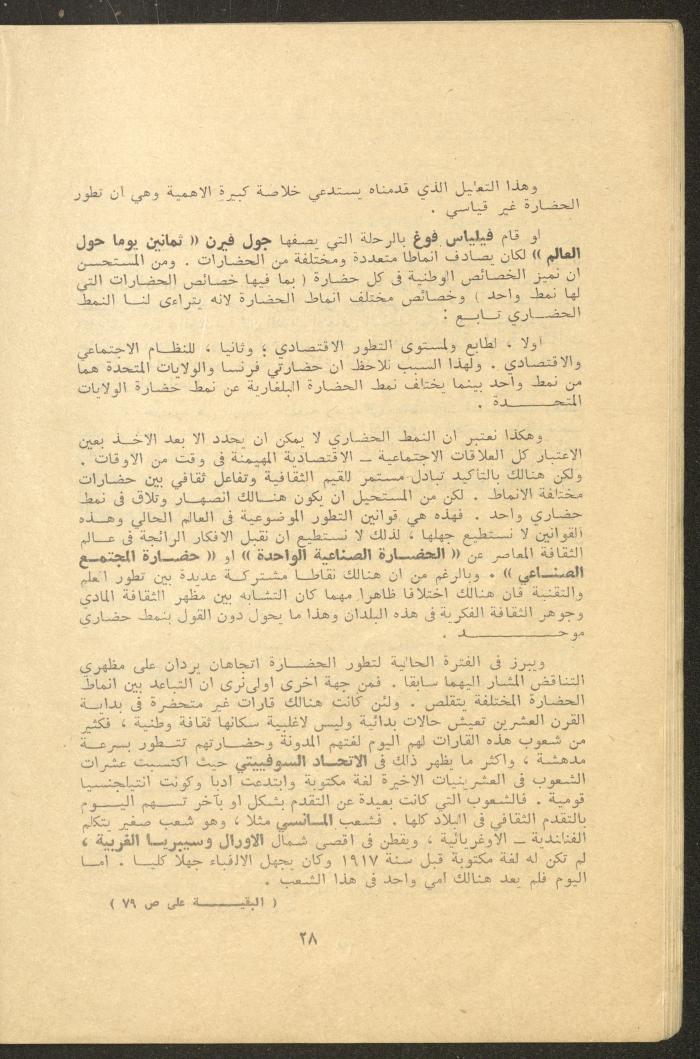 وهذا التعليل الذي قدمناه يستدعي خلاصة كبيرة الاهمية وهي ان تطور
الحضارة غير قياسي .
او قام فيلياس فوغ بالرحلة التي يصفها جول فيرن « ثمانين يوما حول
العالم » لكان يصادف انماطا متعددة ومختلفة من الحضارات . ومن المستحسن
ان نميز الخصائص الوطنية في كل حضارة ( بما فيها خصائص الحضارات التي
لها نمط واحد ) وخصائص مختلف انماط الحضارة لانه يتراءى لنا النمط
الحضاري تابع :
اولا ، لطابع ولمستوى التطور الاقتصادي ؛ وثانيا ، للنظام الاجتماعي
والاقتصادي . ولهذا السبب نلاحظ ان حضارتي فرنسا والولايات المتحدة هما
من نمط واحد بينما يختلف نمط الحضارة البلغارية عن نمط حضارة الولايات
المتحـــــدة .
وهكذا نعتبر ان النمط الحضاري لا يمكن ان يحدد الا بعد الاخذ بعين
الاعتبار كل العلاقات الاجتماعية ــ الاقتصادية المهيمنة في وقت من الاوقات .
ولكن هنالك بالتأكيد تبادل مستمر للقيم الثقافية وتفاعل ثقافي بين حضارات
مختلفة الانماط . لكن من المستحيل ان يكون هنالك انصهار وتلاق في نمط
حضاري واحد . فهذه هي قوانين التطور الموضوعية في العالم الحالي وهذه
القوانين لا نستطيع جهلها ، لذلك لا نستطيع ان نقبل الافكار الرائجة في عالم
الثقافة المعاصر عن « الحضارة الصناعية الواحدة » او « حضارة المجتمع
الصناعي » . وبالرغم من ان هنالك نقاطا مشتركة عديدة بين تطور العلم
والتقنية فان هنالك اختلافا ظاهرا مهما كان التشابه بين مظهر الثقافة المادي
وجوهر الثقافة الفكرية في هذه البلدان وهذا ما يحول دون القول بنمط حضاري
موحـــــد .
ويبرز في الفترة الحالية لتطور الحضارة اتجاهان يردان على مظهري
التناقض المشار اليهما سابقا . فمن جهة اخرى اولى نرى ان التباعد بين انماط
الحضارة المختلفة يتقلص . ولئن كانت هنالك قارات غير متحضرة في بداية
القرن العشرين تعيش حالات بدائية وليس لاغلبية سكانها ثقافة وطنية ، فكثير
من شعوب هذه القارات لهم اليوم لغتهم المدونة وحضارتهم تتطور بسرعة
مدهشة ، واكثر ما يظهر ذلك في الاتحاد السوفييتي حيث اكتسبت عشرات
الشعوب في العشرينيات الاخيرة لغة مكتوبة وابتدعت ادبا وكونت انتيلجنسيا
قومية . فالشعوب التي كانت بعيدة عن التقدم بشكل او بآخر تسهم اليوم
بالتقدم الثقافي في البلاد كلها . فشعب المانسي مثلا ، وهو شعب صغير يتكلم
الفنلندية ــ الاوغريائية ، ويقطن في اقصى شمال الاورال وسيبريا الغربية ،
لم تكن له لغة مكتوبة قبل سنة ١٩١٧ وكان يجهل الالفباء جهلا كليا . اما
اليوم فلم يعد هنالك امي واحد في هذا الشعب .
( البقيـــة على ص ٧٩ )
٢٨